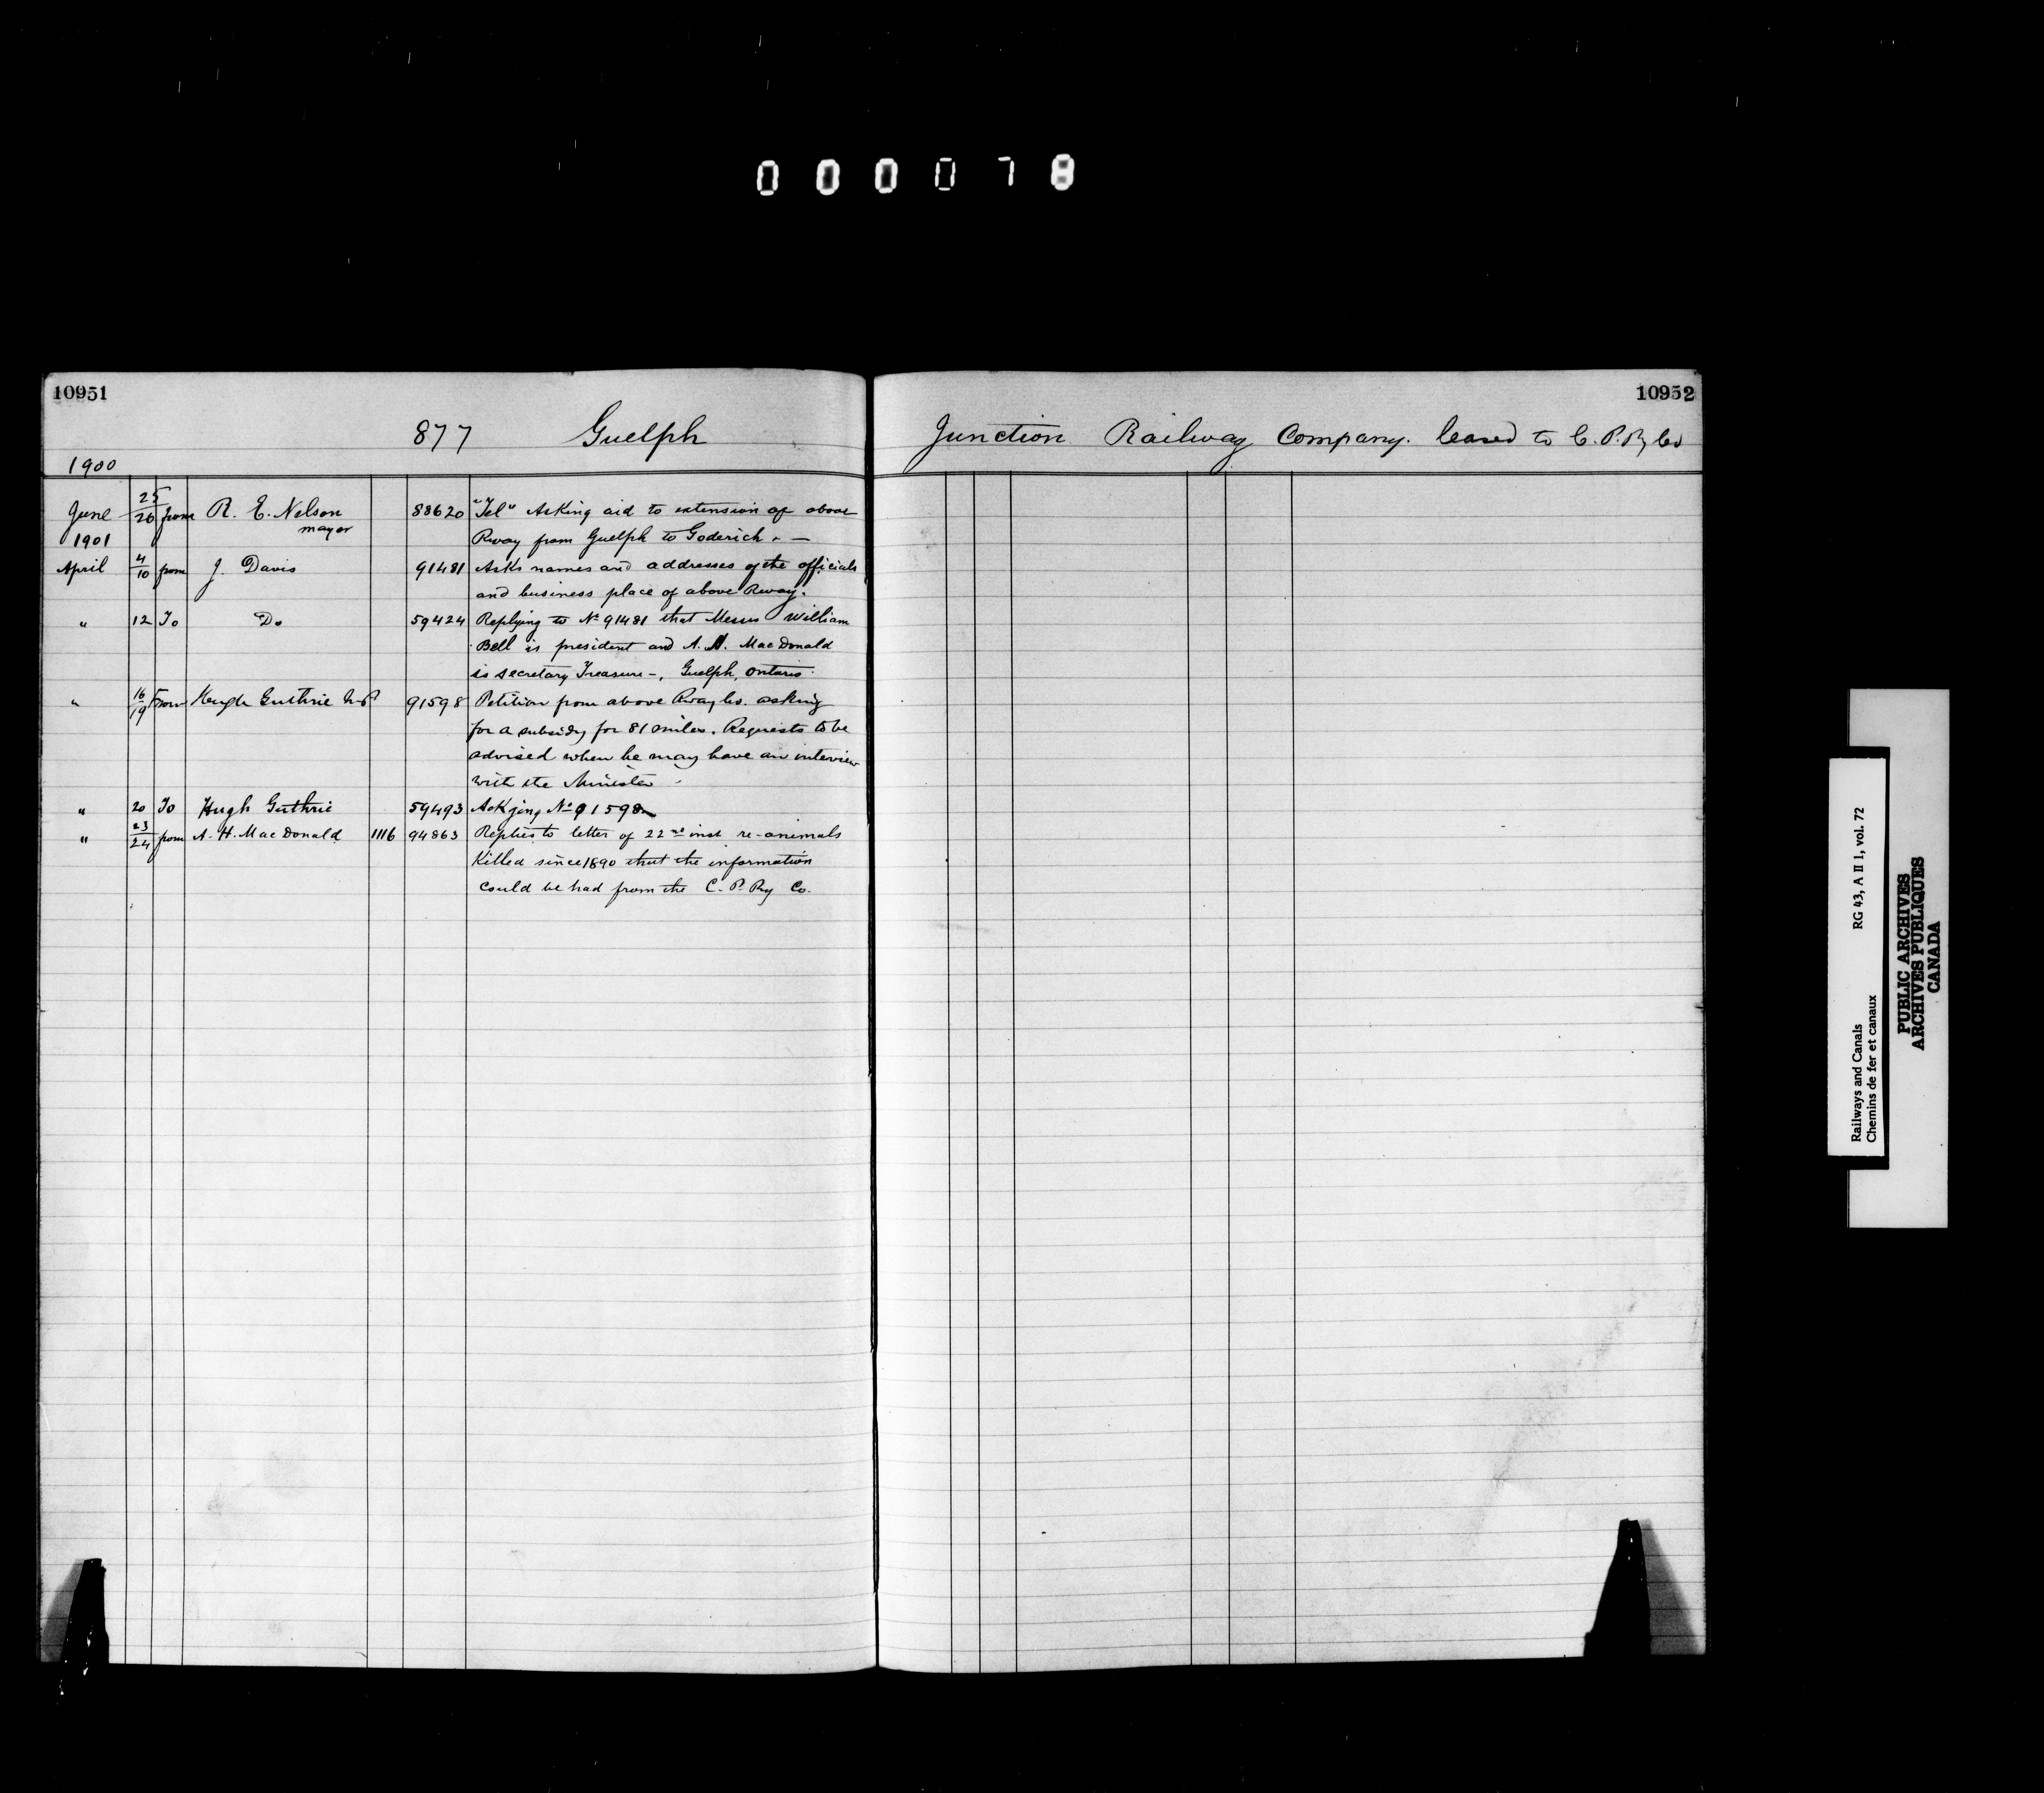 000078
10951
10952
877 Guelph Junction Railway Company. leased to C. P. Ry Co
1900
June 25/26 from R. E. Nelson 88620 "Tel" Asking aid to extension of above
mayor
1901 Rway from Guelph to Goderich. —
April 4/10 from J. Davis 91481 Asks names and addresses of the officials
and business place of above Rway.
" 12 To Do 59424 Replying to No 91481 that Messrs William
Bell is president and A. H. MacDonald
is secretary Treasure-, Guelph, Ontario.
" 16/19 From Hugh Guthrie M.P 91598 Petition from above Rway Co. asking
for a subsidy for 81 miles. Requests to be
advised when he may have an interview
with the Minister.
" 20 To Hugh Guthrie 59493 Ackging No 91598
" 23/24 from A. H. MacDonald 1116 94863 Replies to letter of 22nd inst re-animals
Killed since 1890 that the information
could be had from the C. P. Ry Co.
Railways and Canals RG 43, A II 1, vol. 72
Chemins de fer et canaux
PUBLIC ARCHIVES
ARCHIVES PUBLIQUES
CANADA